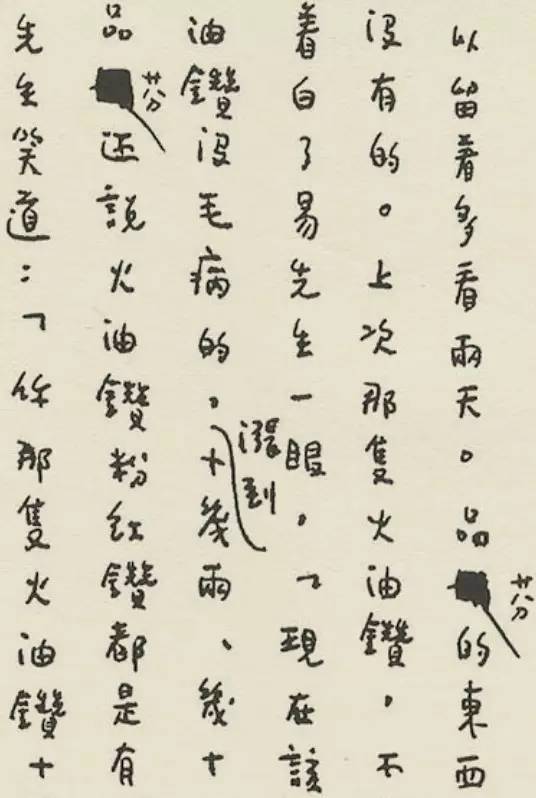 以留着多看兩天。品芬的東西
沒有的。上次那隻火油鑽,不
着白了易先生一眼,「現在該
油鑽沒毛病的,漲到十幾兩、幾十
品芬还說火油鑽粉紅鑽都是有
先生笑道:「你那隻火油鑽十